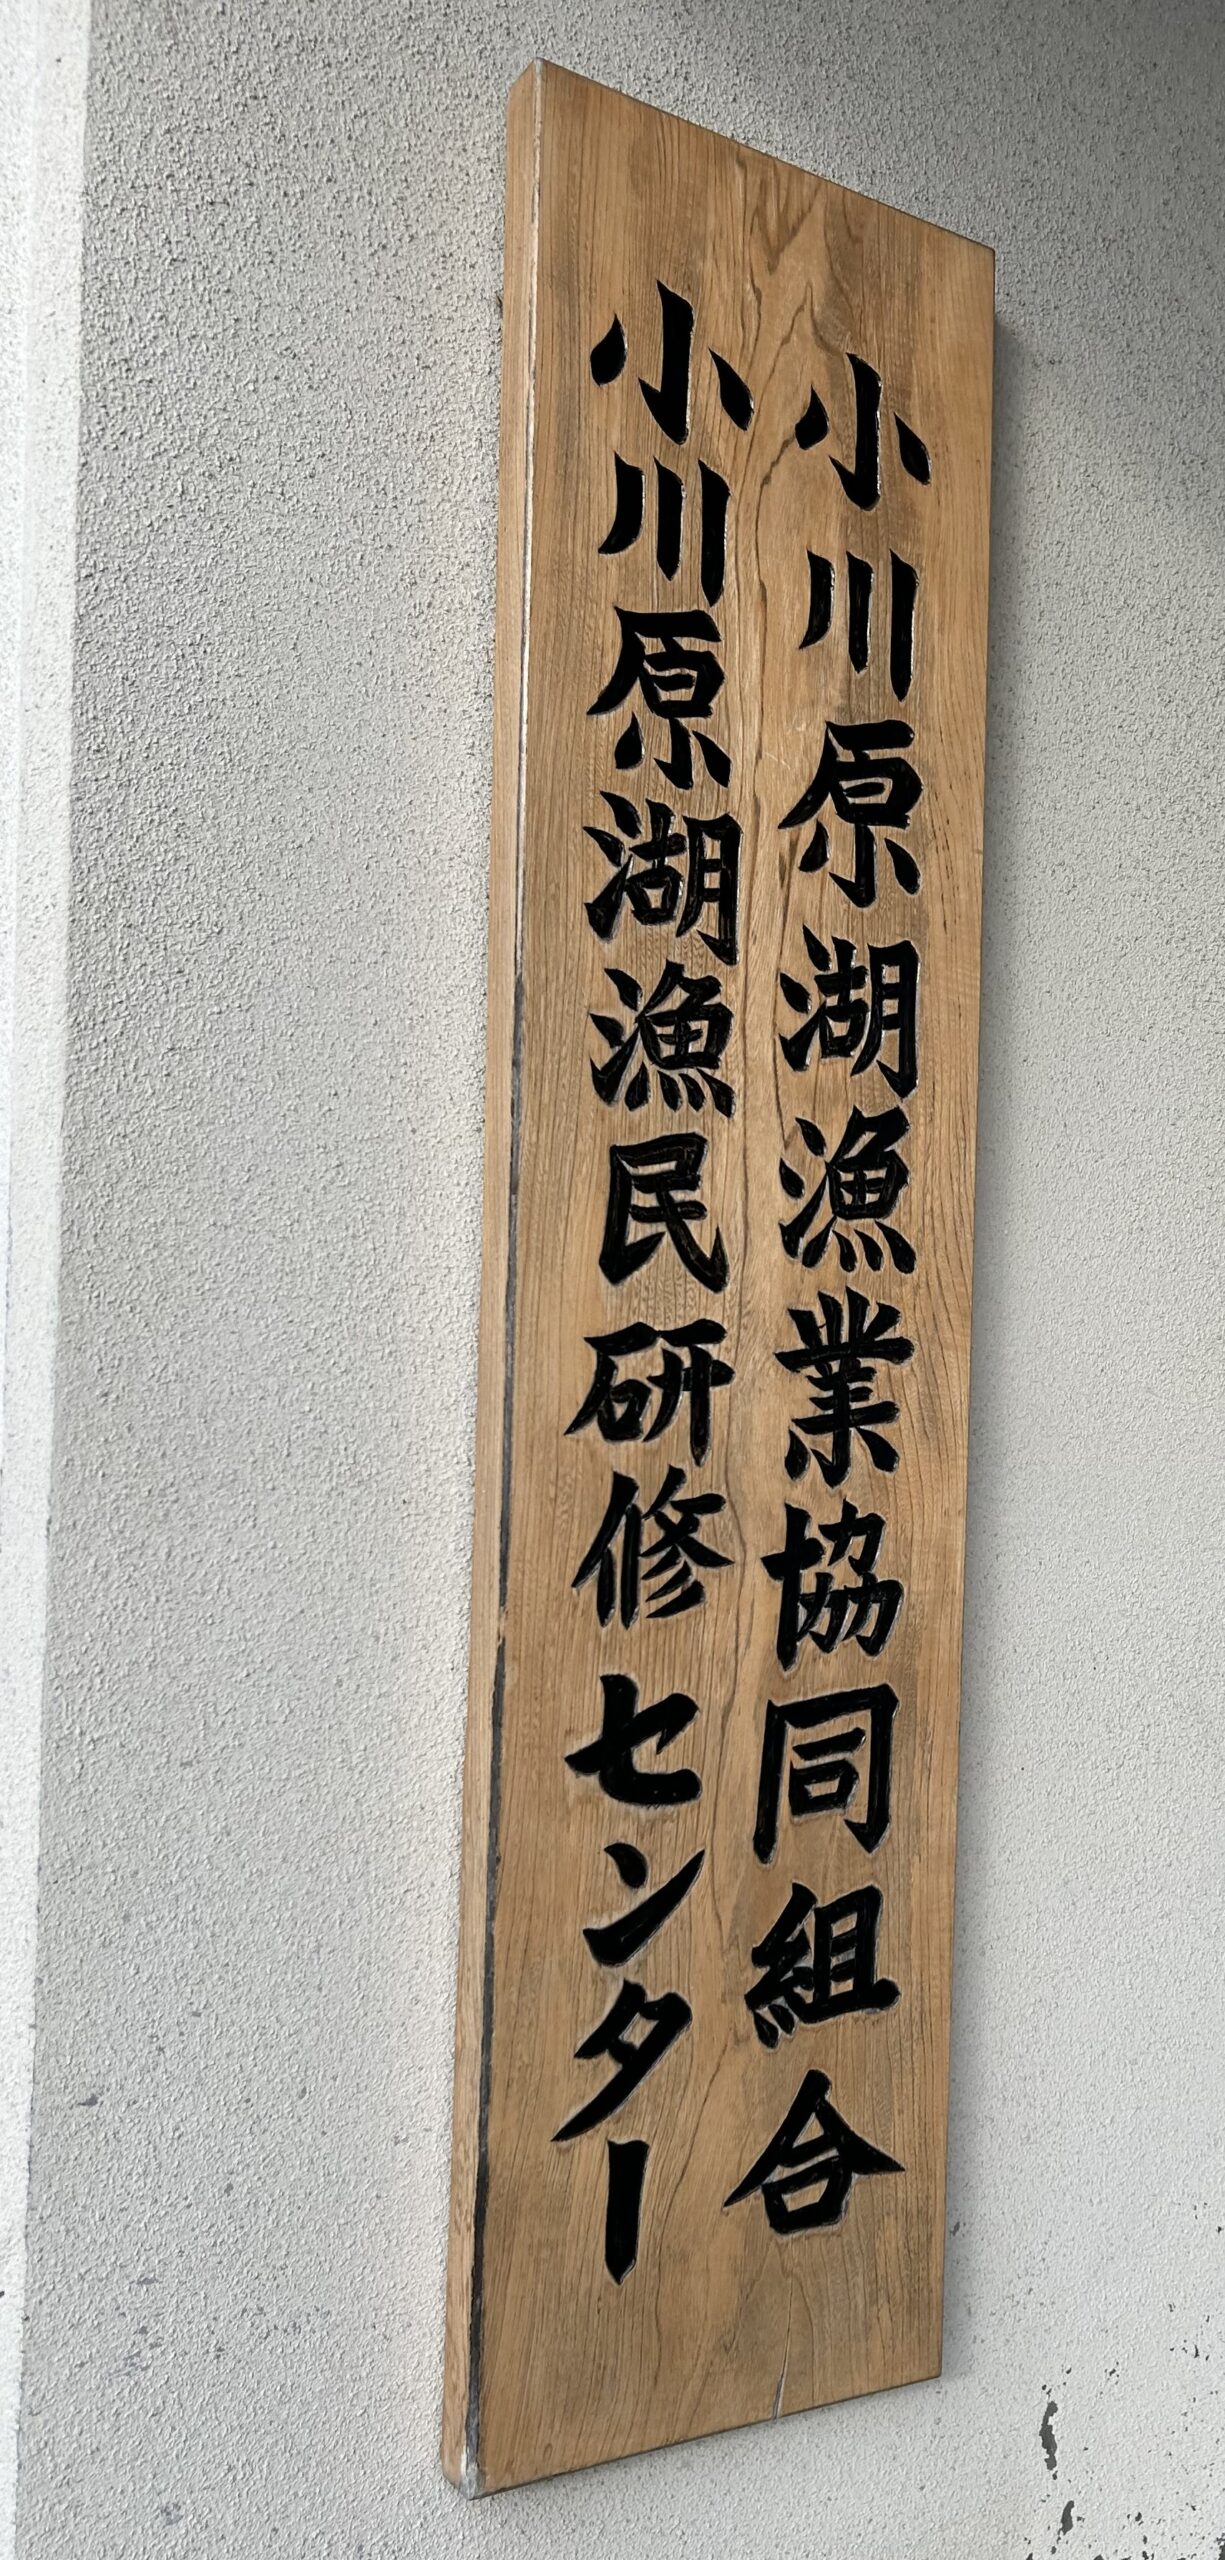 小川原湖漁業協同組合
小川原湖漁民研修センター